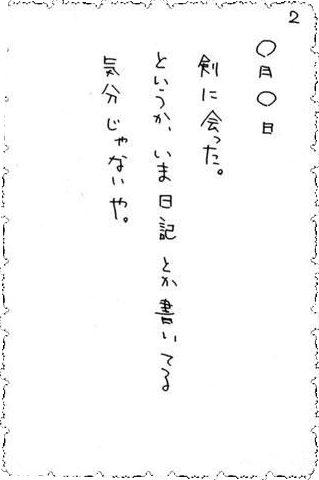 2
〇月〇日
剣に会った。
というか、いま日記とか書いてる
気分じゃないや。